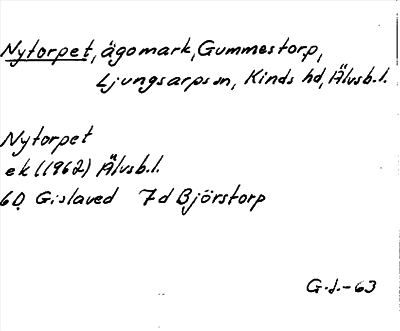 Nytorpet, ägomark, Gummestorp,
Ljungsarps sn, Kinds hd, Älvsb.l.
Nytorpet
ek (1962) Älvsb.l.
60 Gislaved 7d Björstorp
G.J.-63